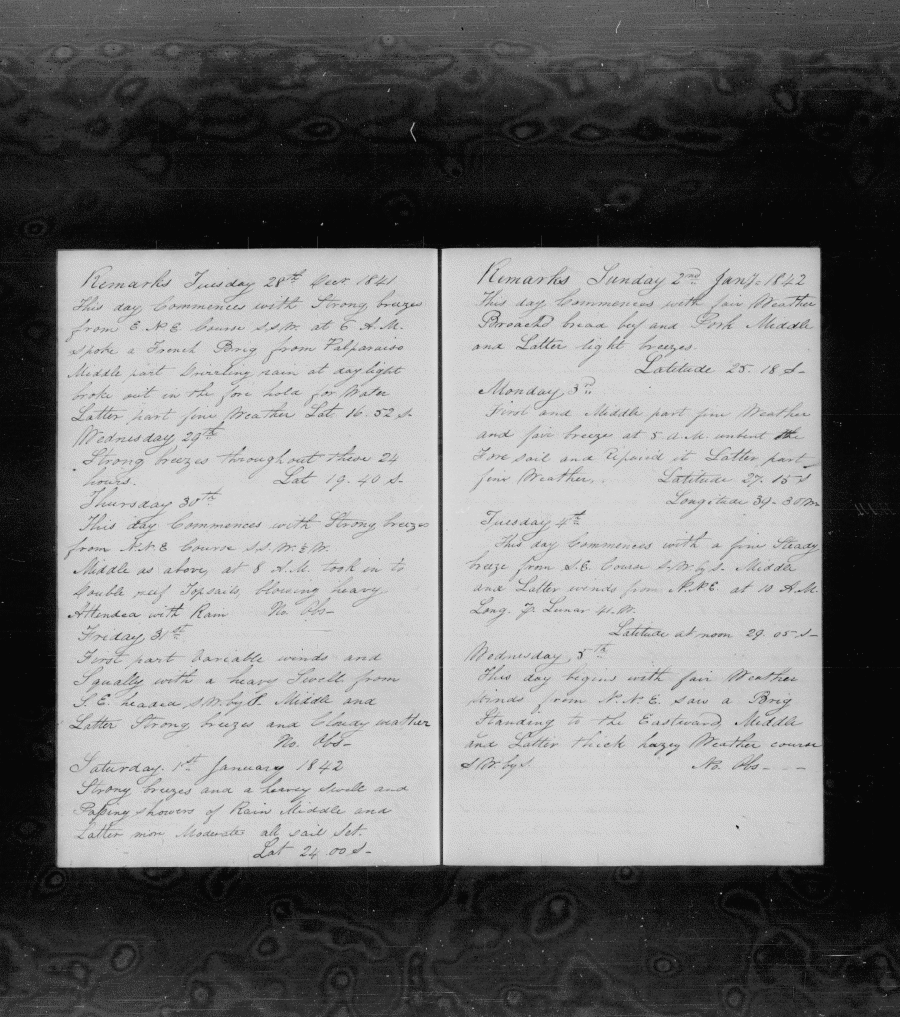 Remarks Tuesday 28th Decr 1841
This day Commences with Strong breezes
from E.N.E Course S.S.W. at 6 A.M.
Spoke a French Brig from Valparaiso
Middle part rain at day light
broke out in the fore hold for Water
Latter part fine Weather Lat 16.52 S-
Wednesday 29th
Strong breezes throughout these 24
hours. Lat 19.40 S-
Thursday 30th
This day Commences with Strong breezes
from N.N.E Course S.S.W. & W.
Middle as above, at 8 A.M. took in to
Double reef Topsails, blowing heavy
Attended with Rain No. Obs-
Friday 31st
First part Variable winds and
Squally with a heavy Swell from
S.E. headed S.W. by S. Middle and
Latter Strong breezes and Cloudy weather
No. Obs-
Saturday. 1st January 1842
Strong breezes and a heavy swell and
Passing showers of Rain Middle and
Latter more Moderate all sail Set.
Lat 24.00 S-
Remarks Sunday 2nd Jany. 1842
This day Commences with fair Weather
Broached bread beef and Pork Middle
and Latter light breezes.
Latitude 25.18 S-
Monday 3rd
First and Middle part fine Weather
and fair breeze at 8 A.M. unbent the
Fore sail and Repaired it Latter part
fine Weather. Latitude 27.15 S
Longitude 39-30 W
Tuesday 4th
This day Commences with a fine Steady
breeze from S.E. Course S.W. by S. Middle
and Latter winds from N.N.E. at 10 A.M.
Long. Lunar 41.W.
Latitude at noon 29.05 S-
Wednesday 5th
This day begins with fair Weather
winds from N.N.E. saw a Brig
Standing to the Eastward Middle
and Latter thick hazey Weather course
S.W. by S. No. Obs- - -